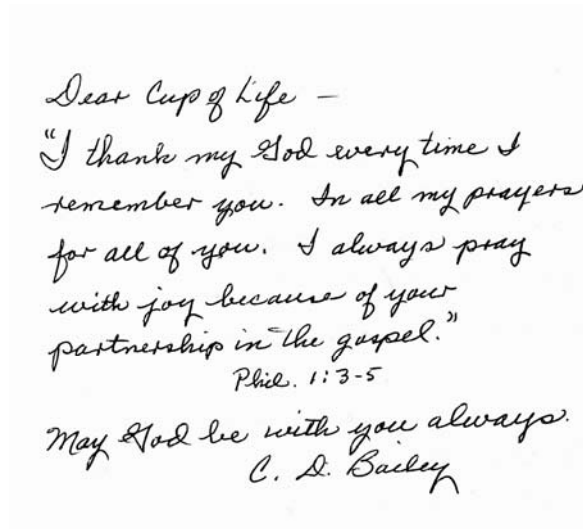 Dear Cup of Life —
"I thank my God every time I
remember you. In all my prayers
for all of you. I always pray
with joy because of your
partnership in the gospel."
Phil. 1:3-5
May God be with you always.
C. D. Bailey